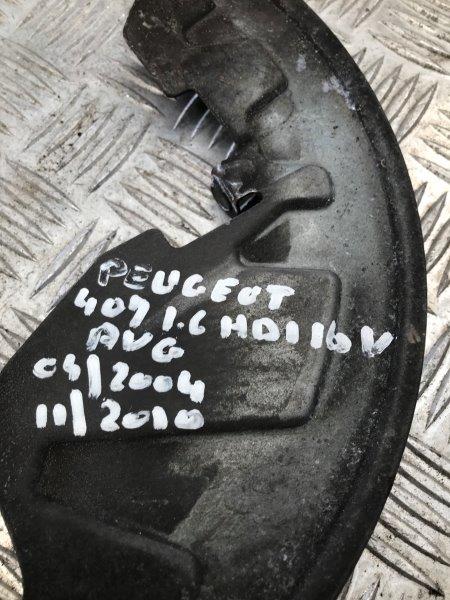 PEUGEOT
407 1.6 HDI 16V
AVG
05/2004
11/2010